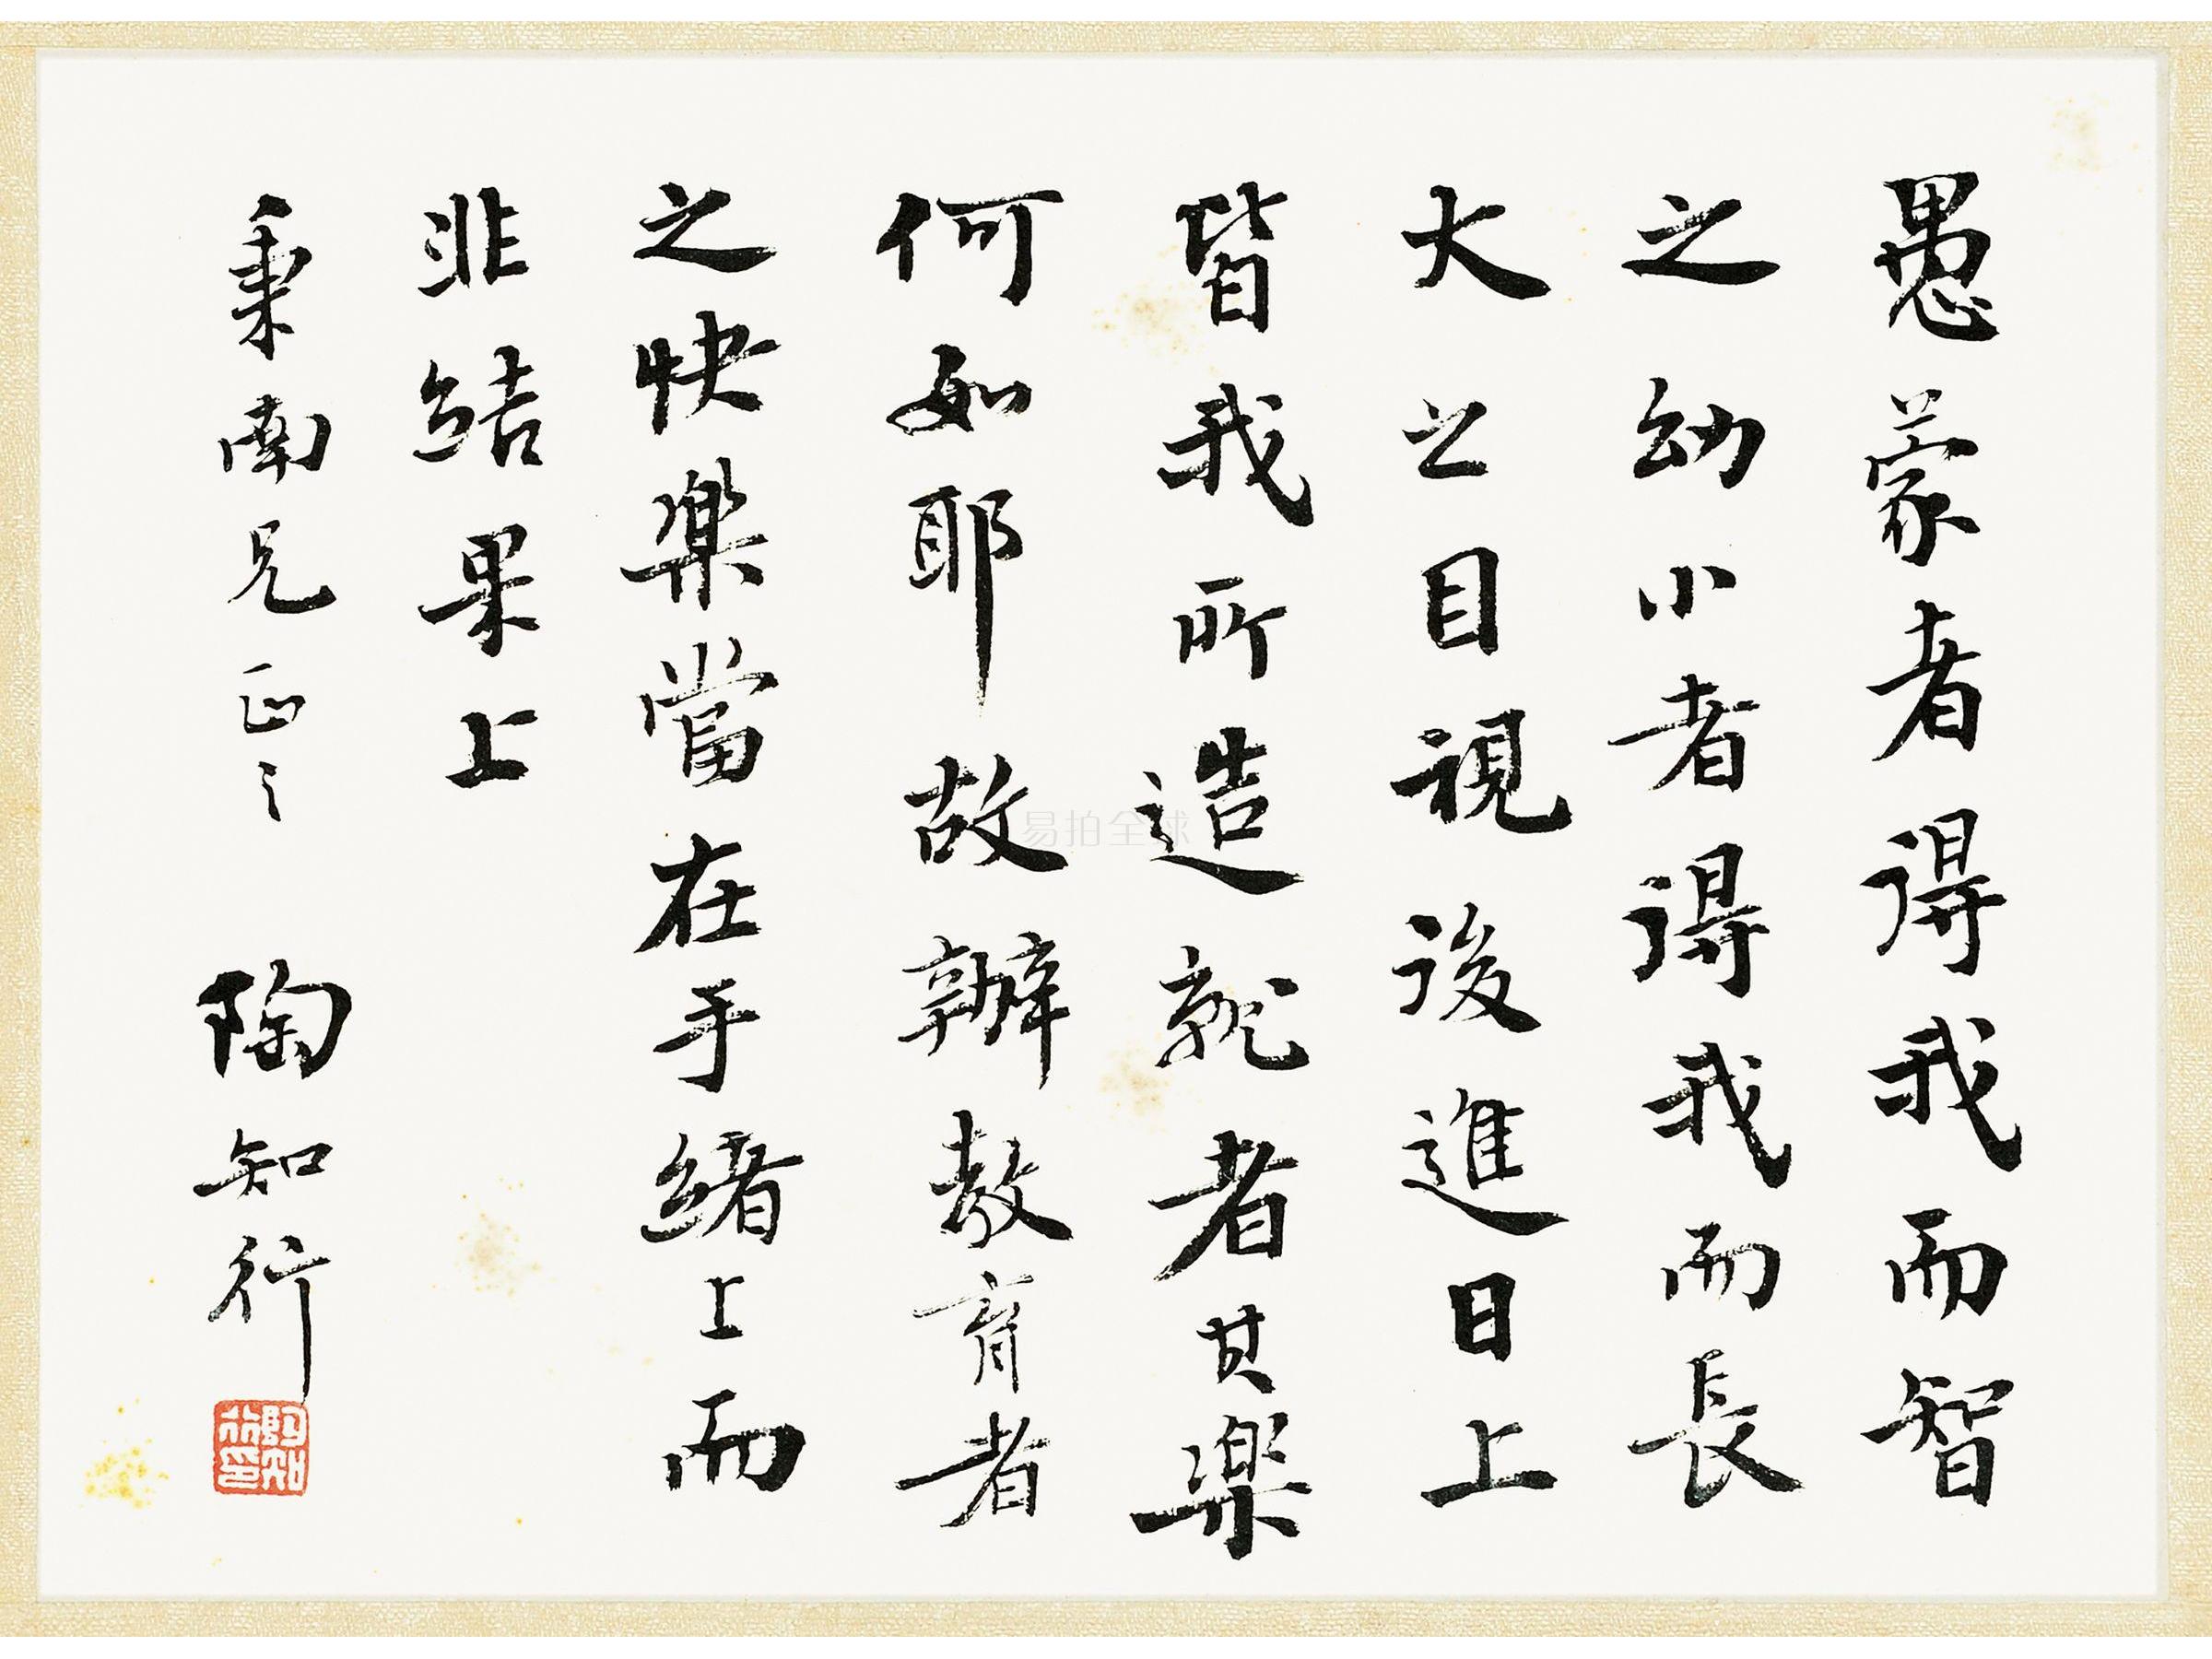 愚蒙者得我而智
之幼小者得我而長
大之目視後進日上
皆我所造就者其樂
何如耶故辦教育者
之快樂當在手緒上而
非結果上
秉南兄正之
陶知行
陶知行印
易拍全球